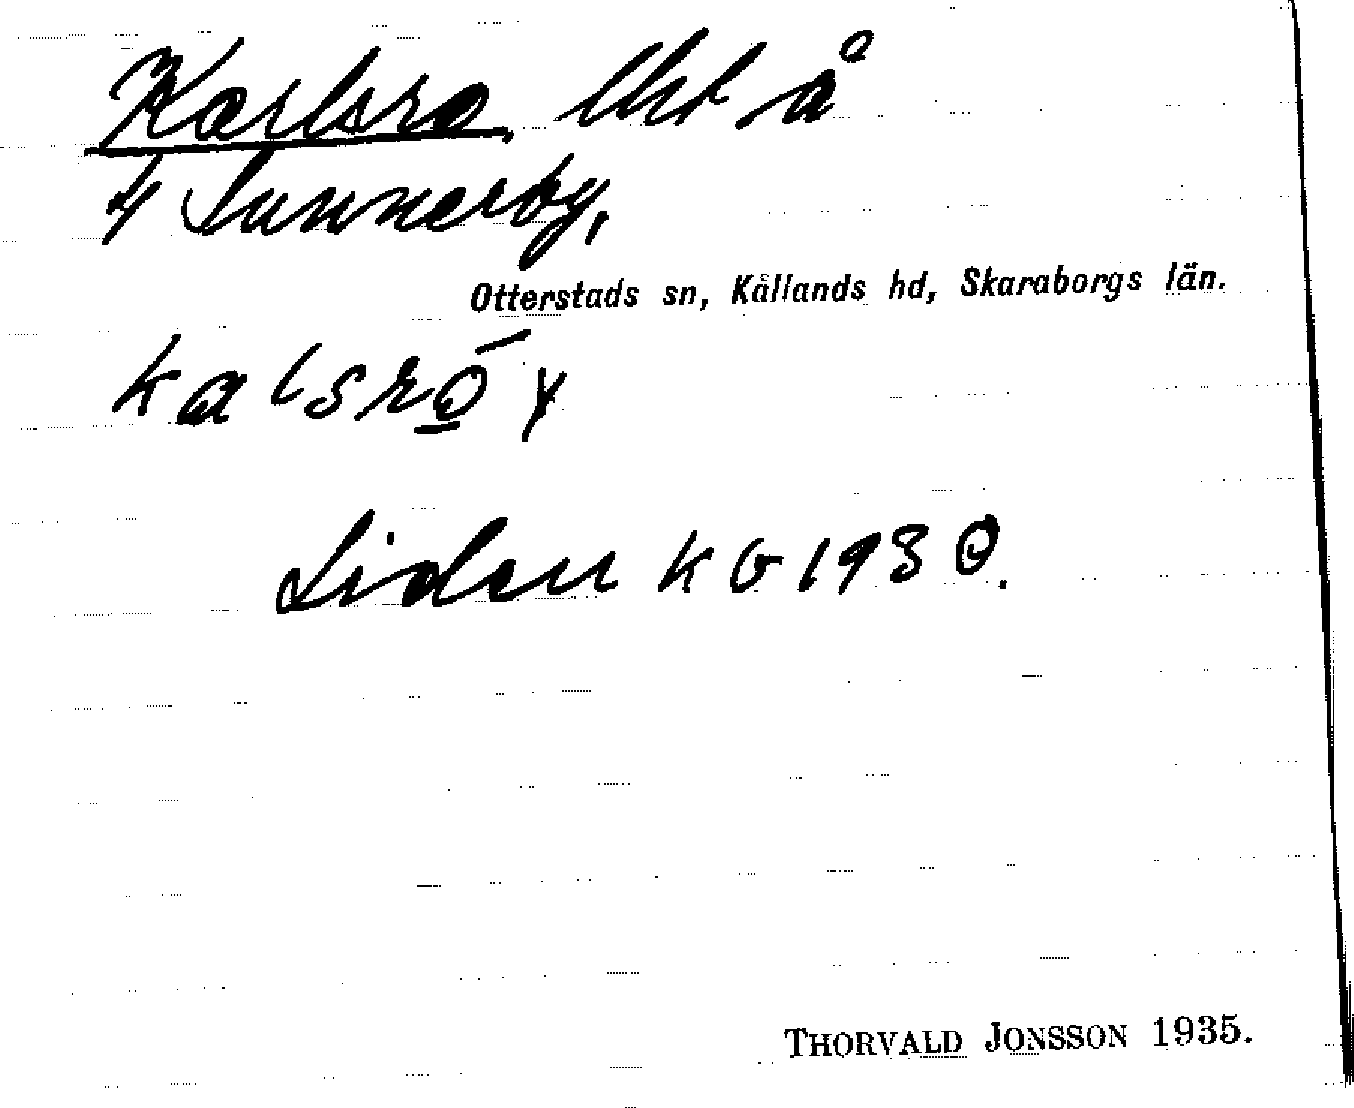 Karlsro, lht å
4 Sunnerby,
Otterstads sn, Kållands hd, Skaraborgs län.
kalsró y
Liden KG 1930.
THORVALD JONSSON 1935.